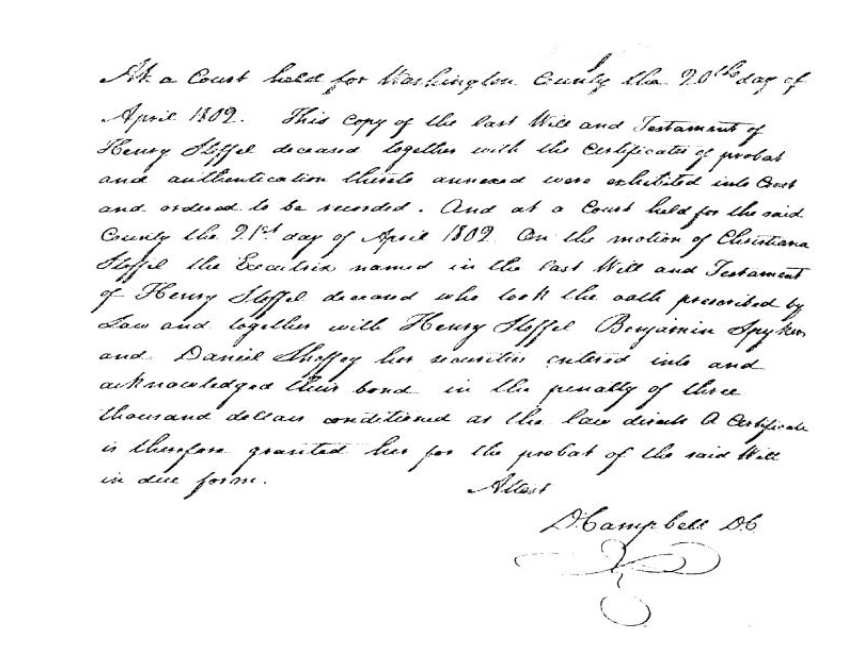 At a Court held for Washington County the 20th day of
April 1802. This copy of the last Will and Testament of
Henry Steffel deceased together with the Certificates of probat
and authentication thereto annexed were exhibited into Court
and ordered to be recorded. And at a Court held for the said
County the 21st day of April 1802 On the motion of Christiana
Steffel the Executrix named in the last Will and Testament
of Henry Steffel deceased who took the oath prescribed by
Law and together with Henry Steffel Benjamin Spyker
and Daniel Sheffey her securities entered into and
acknowledged their bond in the penalty of three
thousand dollars conditioned as the law directs A Certificate
is therefore granted her for the probat of the said Will
in due form.
Attest
D. Campbell DC